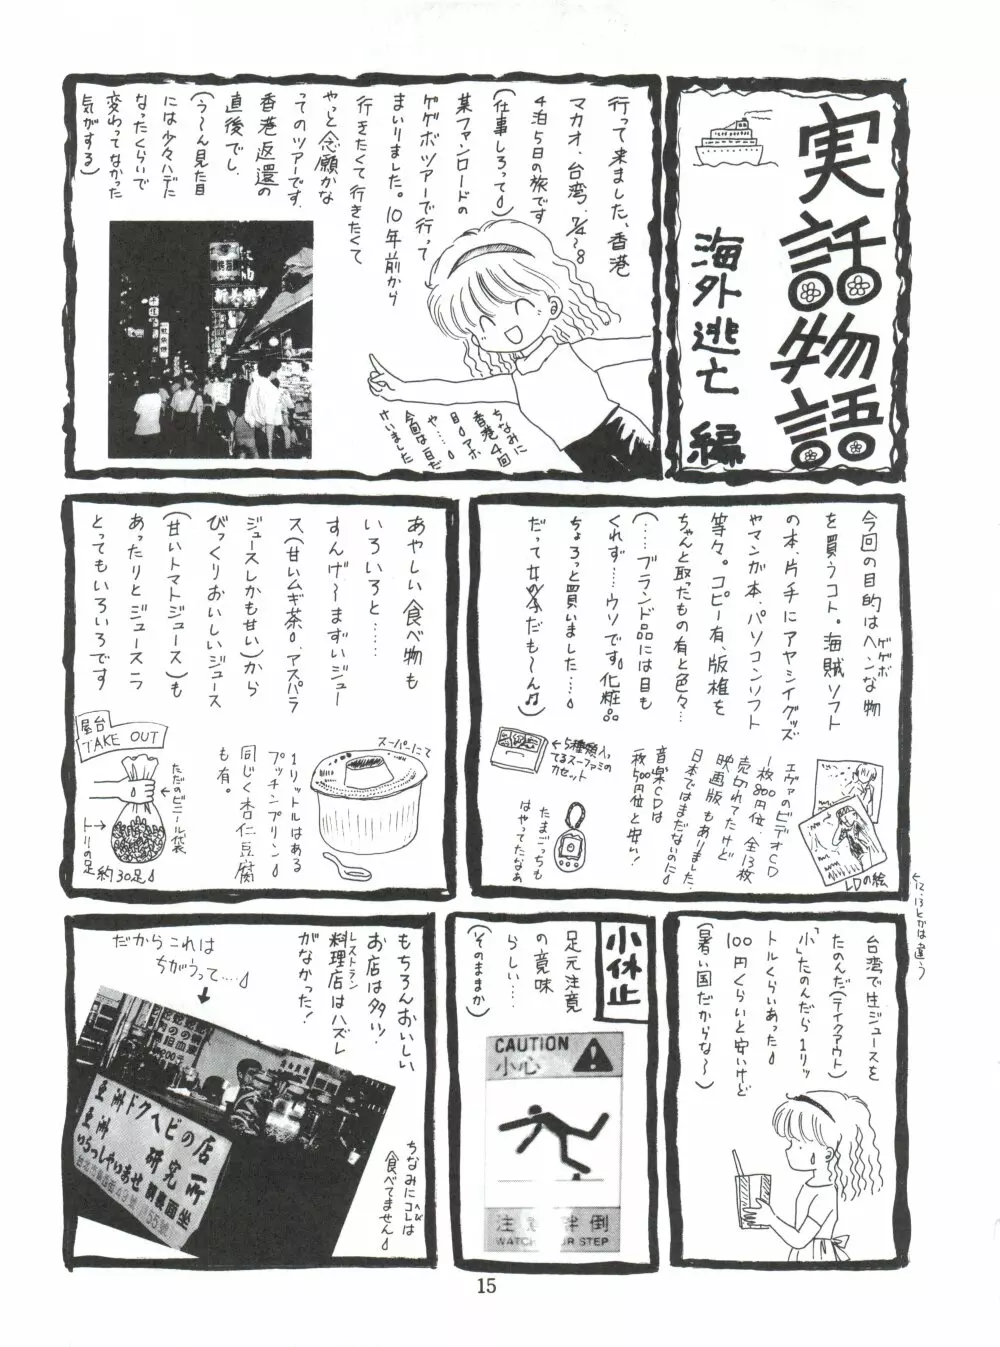 実話物語
海外逃亡 編
行って来ました、香港
マカオ、台湾、7/4〜8
4泊5日の旅です
(仕事しろって)
某ファンロードの
ゲゲボツアーで行って
まいりました。10年前から
行きたくて行きたくて
やっと念願かな
ってのツアーです。
香港返還の
直後でし、
(う〜ん見た目
には少々ハデに
なったくらいで
変わってなかった
気がする)
ちなみに
香港4回
目。アホ
や…。
今回は母だ
けいました
今回の目的はヘンな物
ゲゲボ
を買うコト。海賊ソフト
の本、片手にアヤシイグッズ
やマンガ本、パソコンソフト
等々。コピー有、版権を
ちゃんと取ったもの有と色々…
(……ブランド品には目も
くれず……ウソです。化粧品
ちょろっと買いました……。
だって女の子だも〜ん♫)
エヴァのビデオCD
一枚800円位、全13枚
売切れてたけど
映画版もありました。
日本ではまだないのに。
音楽CDは
一枚500円位と安い!
LDの絵
←12、13とかは違う
←5種類入っ
てるスーファミの
カセット
たまごっちも
はやってたなぁ
あやしい食べ物も
いろいろと……
すんげ〜まずいジュー
ス(甘いムギ茶。アスパラ
ジュースしかも甘い)から
びっくりおいしいジュース
(甘いトマトジュース)も
あったりとジュース1ラ
とってもいろいろです
スーパーにて
1リットルはある
プッチンプリン。
同じく杏仁豆腐
も有。
屋台
TAKE OUT
ただのビニール袋
トリの足→
約30足
台湾で生ジュースを
たのんだ(テイクアウト)
「小」たのんだら1リッ
トルくらいあった。
100円くらいと安いけど
(暑い国だからな〜)
小休止
足元注意
の意味
らしい……
(そのままか)
CAUTION
小心
倒
WATCH YOUR STEP
もちろんおいしい
お店は多い!
レストラン
料理店はハズレ
がなかった!
だからこれは
ちがうって……。
亜洲ドクヘビの店
亜洲 研究所
いらっしゃいませ
ちなみにコレは
へび
食べてません。
15